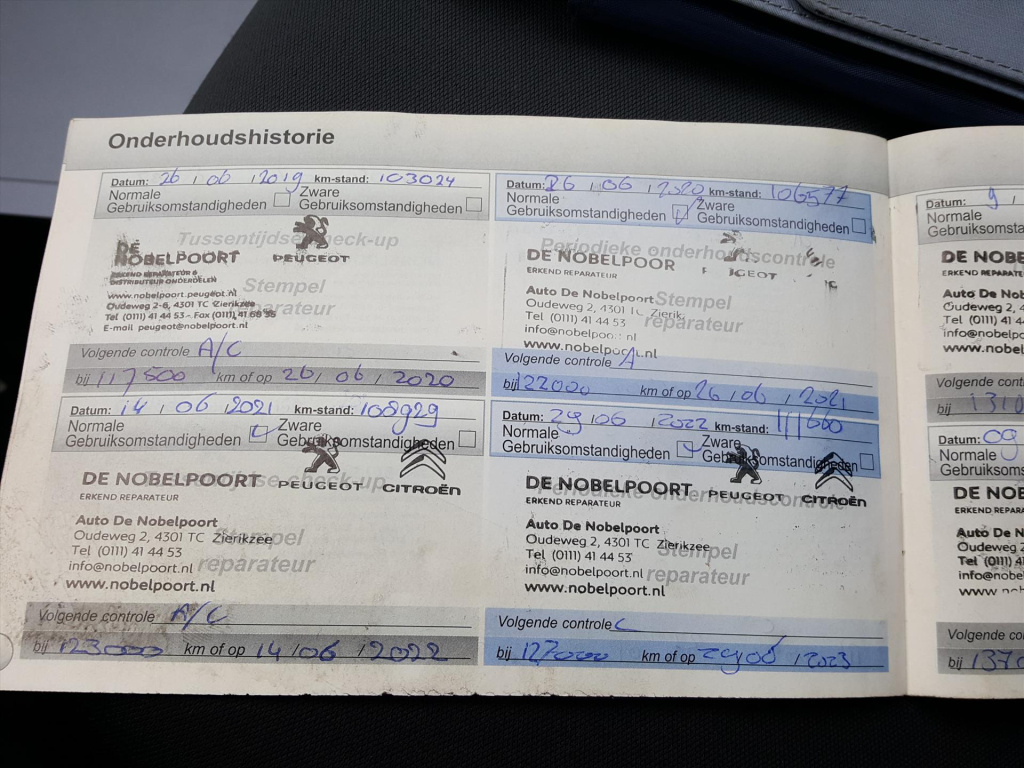 Onderhoudshistorie
Datum: 26 / 06 / 2019 km-stand: 103024
Normale Gebruiksomstandigheden
Zware Gebruiksomstandigheden
Tussentijdse check-up
DE NOBELPOORT
PEUGEOT
ERKEND REPARATEUR &
DISTRIBUTEUR ONDERDELEN
Stempel reparateur
www.nobelpoort.peugeot.nl
Oudeweg 2-6, 4301 TC Zierikzee
Tel (0111) 41 44 53 - Fax (0111) 41
E-mail peugeot@nobelpoort.nl
Volgende controle A/C
bij 117500 km of op 26 / 06 / 2020
Datum: 26 / 06 / 2020 km-stand: 106577
Normale Gebruiksomstandigheden
Zware Gebruiksomstandigheden
Periodieke onderhoudscontrole
DE NOBELPOOR
ERKEND REPARATEUR
Auto De Nobelpoort
Stempel reparateur
Oudeweg 2, 4301 TC Zierik
Tel (0111) 41 44 53
info@nobelpoort.nl
www.nobelpoort.nl
Volgende controle A
bij 122000 km of op 26 / 06 / 2021
Datum: 14 / 06 / 2021 km-stand: 108929
Normale Gebruiksomstandigheden
Zware Gebruiksomstandigheden
DE NOBELPOORT
PEUGEOT CITROËN
ERKEND REPARATEUR
Auto De Nobelpoort
Oudeweg 2, 4301 TC Zierikzee
Tel (0111) 41 44 53
info@nobelpoort.nl
www.nobelpoort.nl
Stempel reparateur
Volgende controle A/C
bij 123000 km of op 14 / 06 / 2022
Datum: 29 / 06 / 2022 km-stand: 111660
Normale Gebruiksomstandigheden
Zware Gebruiksomstandigheden
Periodieke onderhoudscontrole
DE NOBELPOORT
PEUGEOT CITROËN
ERKEND REPARATEUR
Auto De Nobelpoort
Oudeweg 2, 4301 TC Zierikzee
Tel (0111) 41 44 53
info@nobelpoort.nl
www.nobelpoort.nl
Stempel reparateur
Volgende controle C
bij 127000 km of op 29 / 06 / 2023
Datum: 9 /
Normale
Gebruiksomsta
DE NOB
ERKEND REPARATE
Auto De Nob
Oudeweg 2,
Tel (0111) 41 4
info@nobelpoo
www.nobel
Volgende contr
bij 1310
Datum: 09
Normale
Gebruiksomst
DE NOB
ERKEND REPAR
Auto De No
Oudeweg 2
Tel (0111) 41
info@nobe
Volgende con
bij 1370